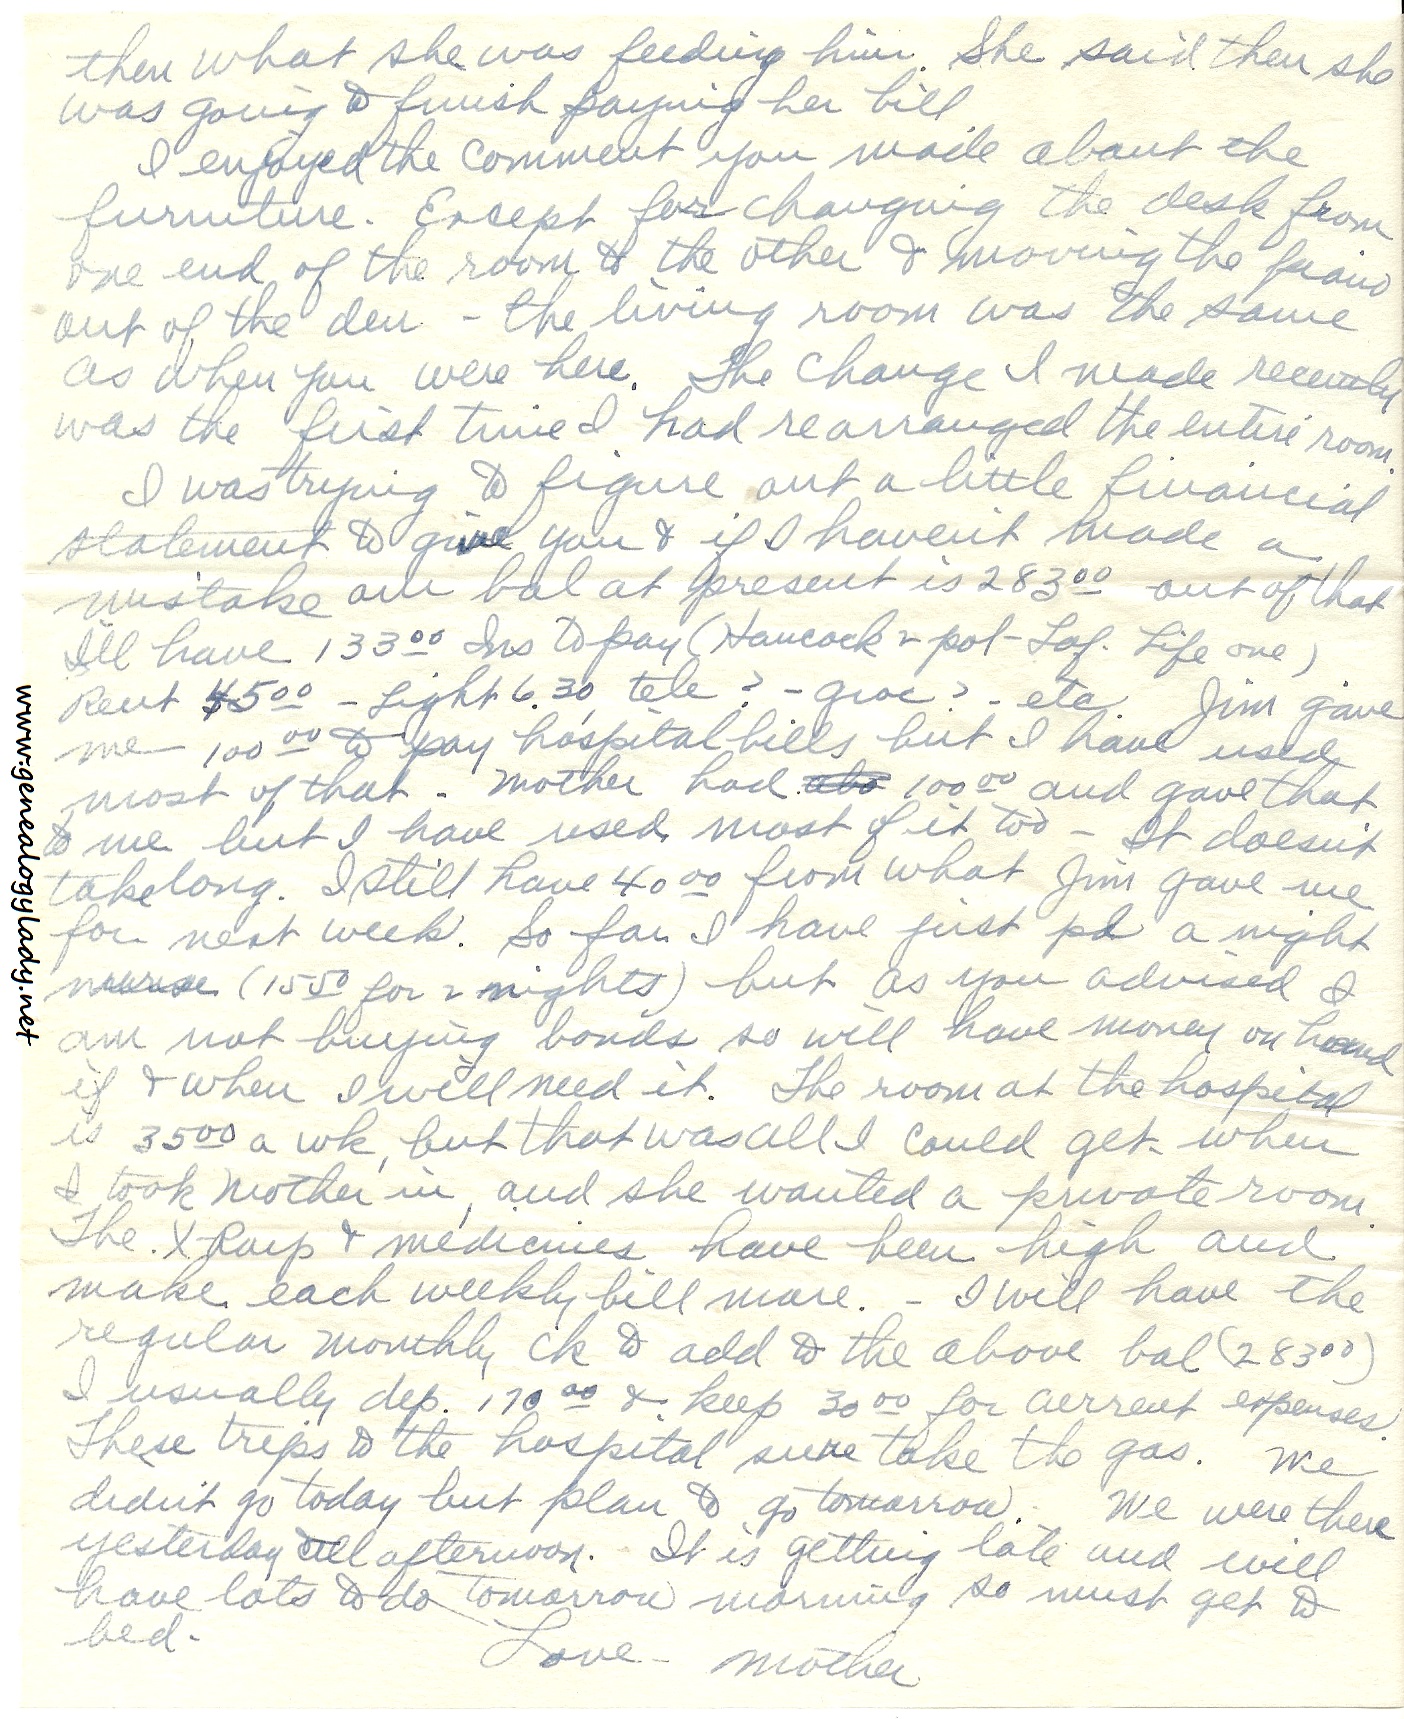 then what she was feeding him. She said then she
was going to finish paying her bill
I enjoyed the comment you made about the
furniture. Except for changing the desk from
one end of the room to the other & moving the piano
out of the den - the living room was the same
as when you were here. The change I made recently
was the first time I had rearranged the entire room.
I was trying to figure out a little financial
statement to give you & if I haven't made a
mistake our bal at present is 283.00 out of that
I'll have 133.00 Ins to pay (Hancock 2 pol - Laf. Life one)
Rent 45.00 - Light 6.30, tele ? - groc ? - etc. Jim gave
me 100.00 to pay hospital bills but I have used
most of that - Mother had 100.00 and gave that
to me but I have used most of it too - It doesn't
take long. I still have 40.00 from what Jim gave me
for next week. So far I have just pd a night
nurse (15.50 for 2 nights) but as you advised I
am not buying bonds so will have money on hand
if & when I will need it. The room at the hospital
is 35.00 a wk, but that was all I could get when
I took Mother in, and she wanted a private room.
The X Rays & medicines have been high and
make each weekly bill more. - I will have the
regular monthly ck to add to the above bal (283.00)
I usually dep. 170.00 & keep 30.00 for current expenses.
These trips to the hospital sure take the gas. We
didn't go today but plan to go tomorrow. We were there
yesterday all afternoon. It is getting late and will
have lots to do tomorrow morning so must get to
bed.
Love - Mother
www.genealogylady.net